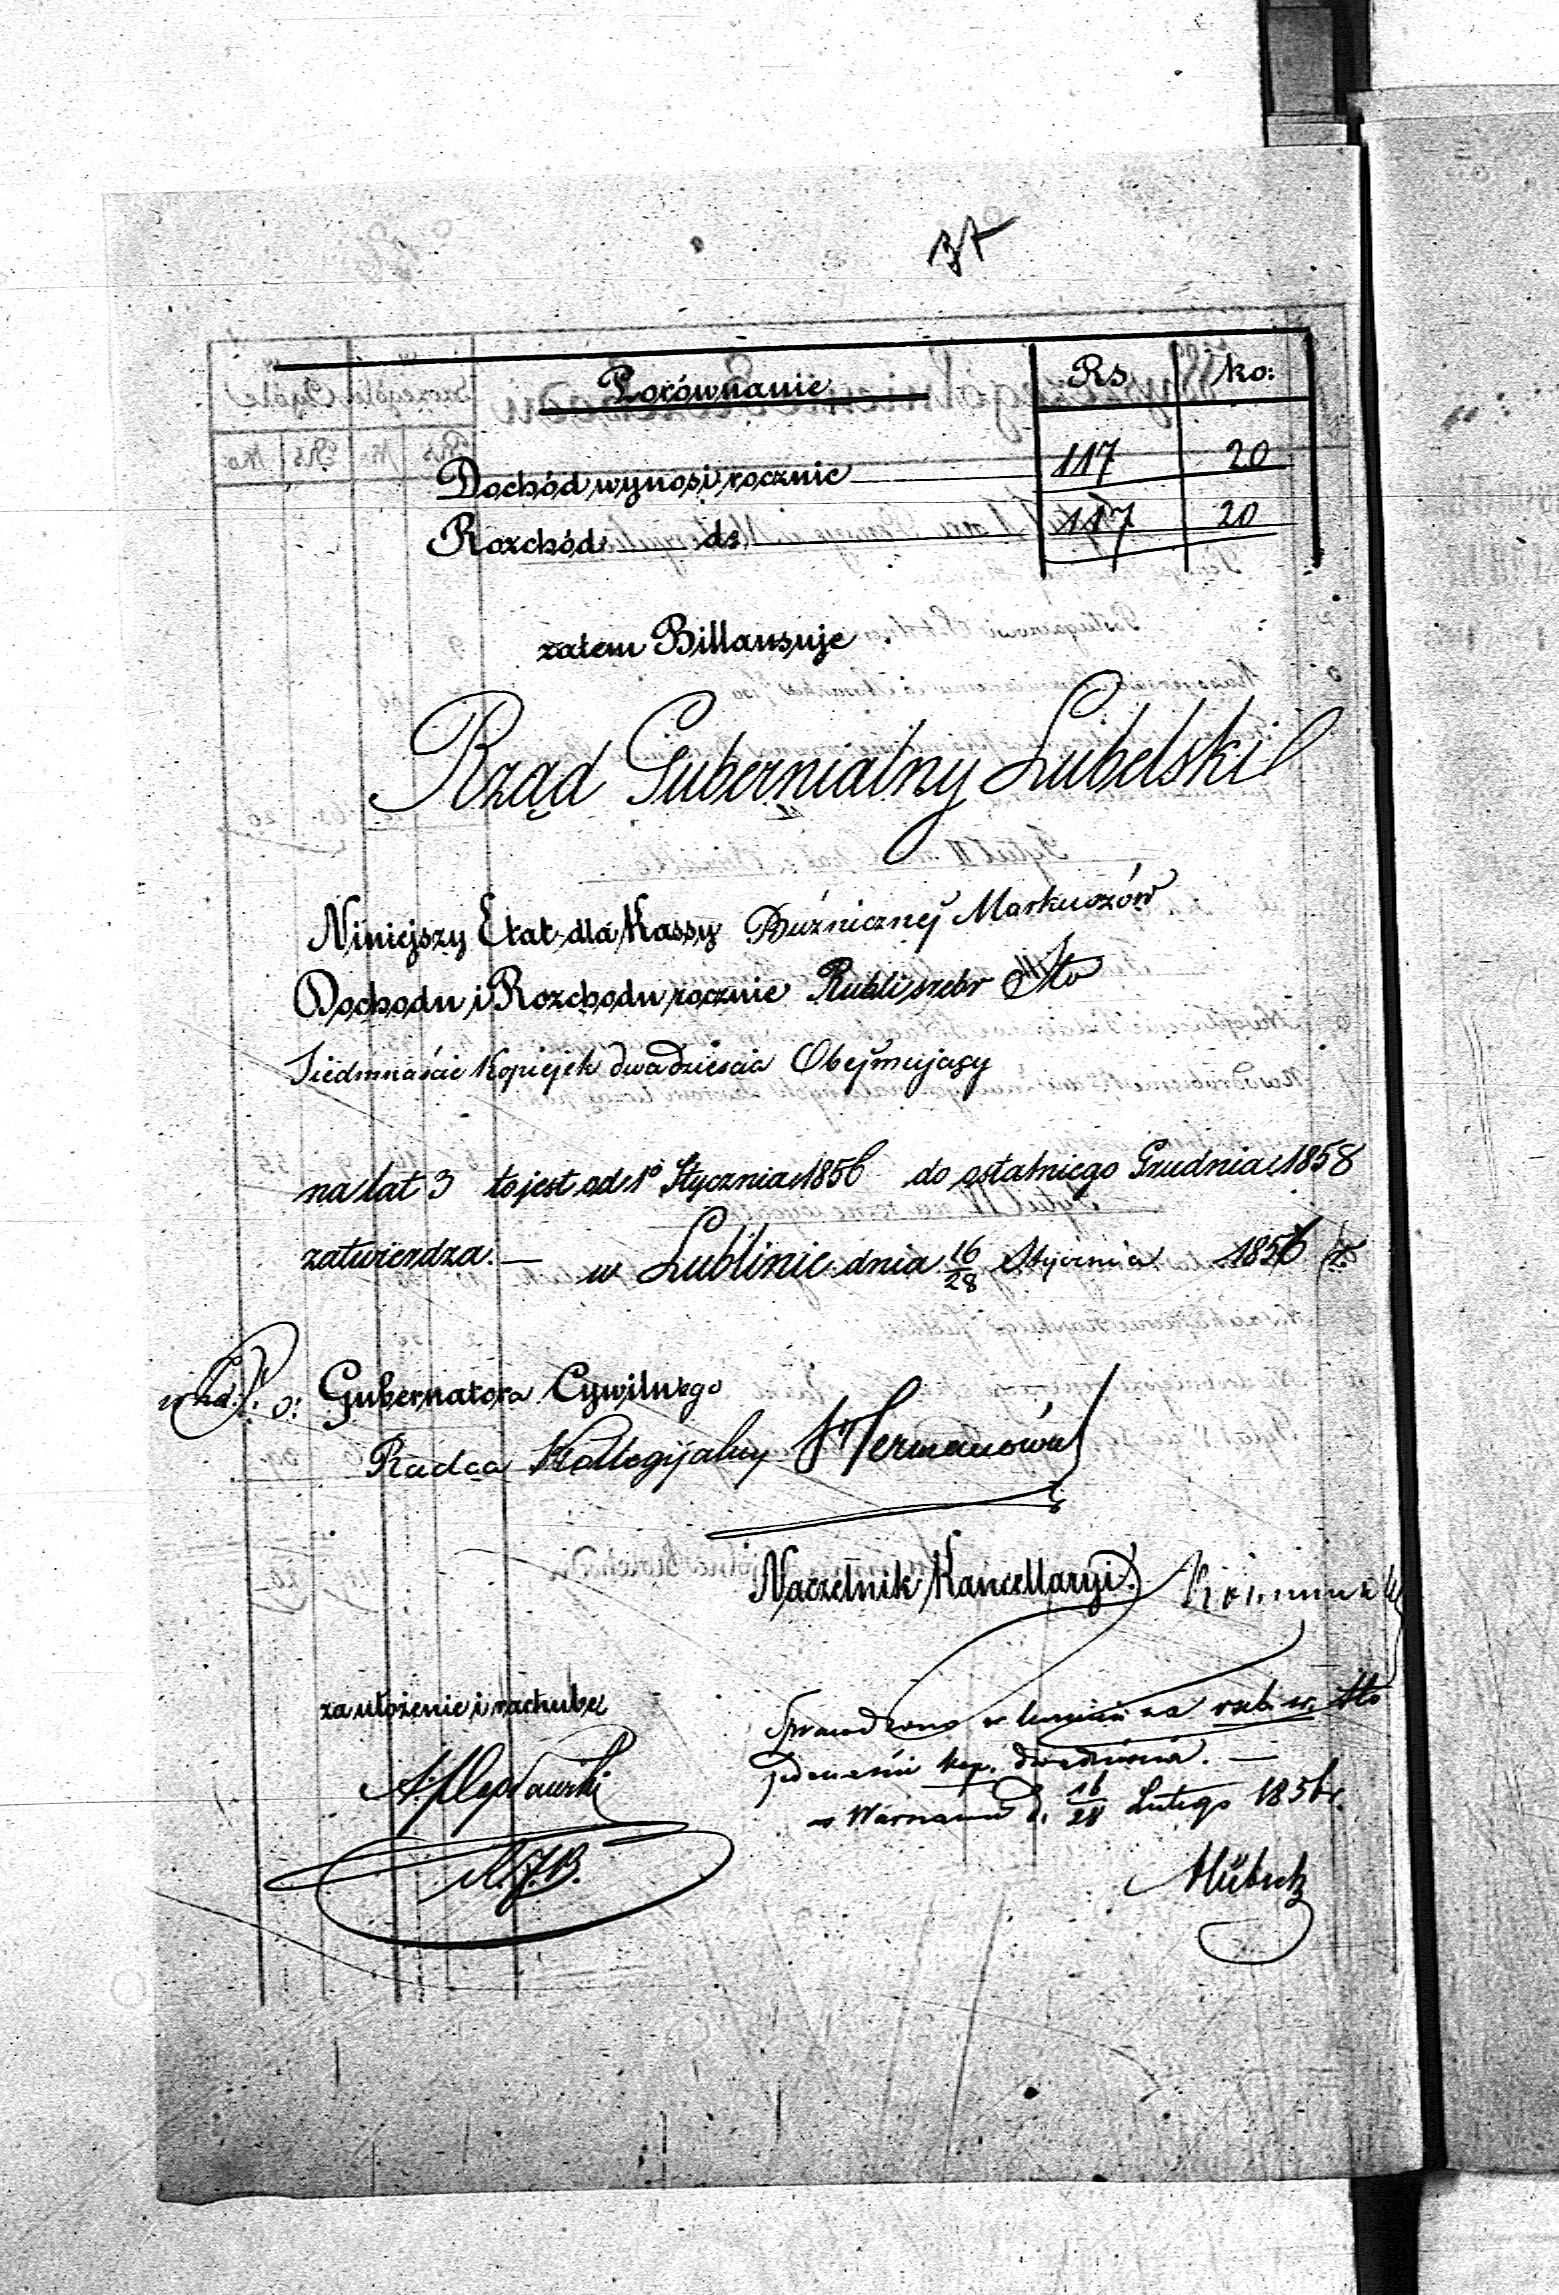 37
Porównanie Rs ko:
Dochód wynosi rocznie 117 20
Rozchód do 117 20
zatem Billansuje
Rząd Gubernialny Lubelski
Niniejszy Etat dla Kassy Bużnicznej Markuszów
Dochodu i Rozchodu rocznie Rubli srebr Sto
Siedmnaście Kopiejek dwadzieścia Obejmujący
na lat 3 to jest od 1° Stycznia 1856 do ostatniego Grudnia 1858
zatwierdza. — w Lublinie dnia 16/28 Stycznia 1856 r.
Gubernatora Cywilnego
Radca Kollegijalny
Naczelnik Kancellaryi
za ułożenie i rachubę
Sprawdzono w summie za rub. sr. sto
kop. dwadzieścia. —
w Warszawie d. 16/28 Lutego 1856 r.